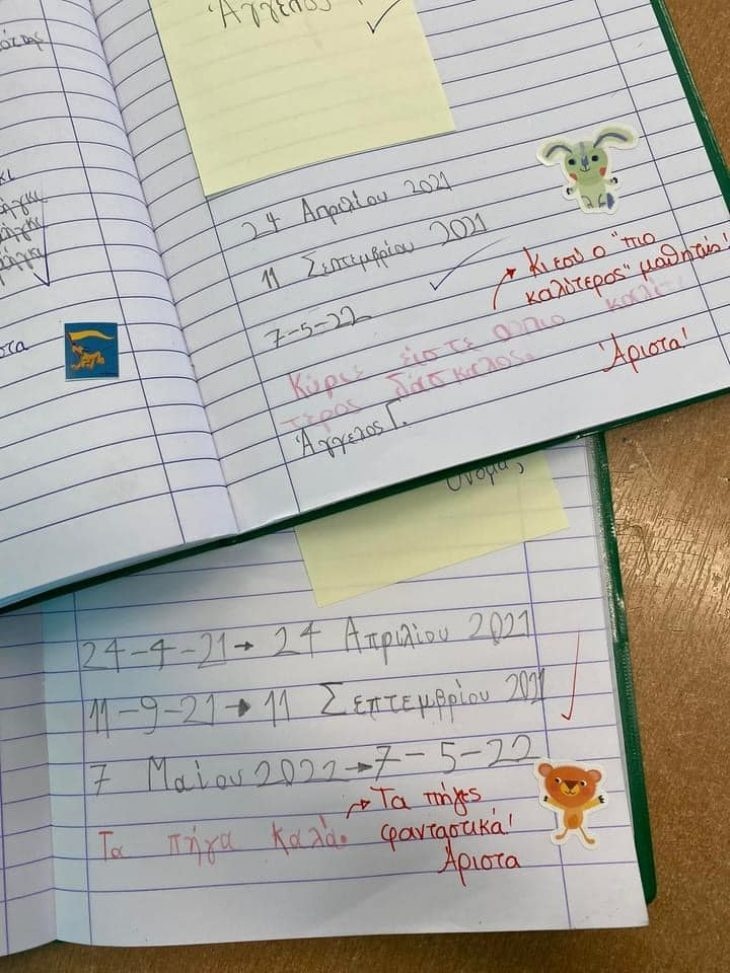 Άγγελος
24 Απριλίου 2021
11 Σεπτεμβρίου 2021
7-5-22
Κύριε είστε ο πιο καλί
τερος δάσκαλος.
Άγγελος Γ.
Κι εσύ ο "πιο
καλίτερος" μαθητής!
Άριστα!
Όνομα,
24-4-21→ 24 Απριλίου 2021
11-9-21→ 11 Σεπτεμβρίου 2021
7 Μαΐου 2022→7-5-22
Τα πήγα καλά.
→Τα πήγες
φανταστικά!
Άριστα